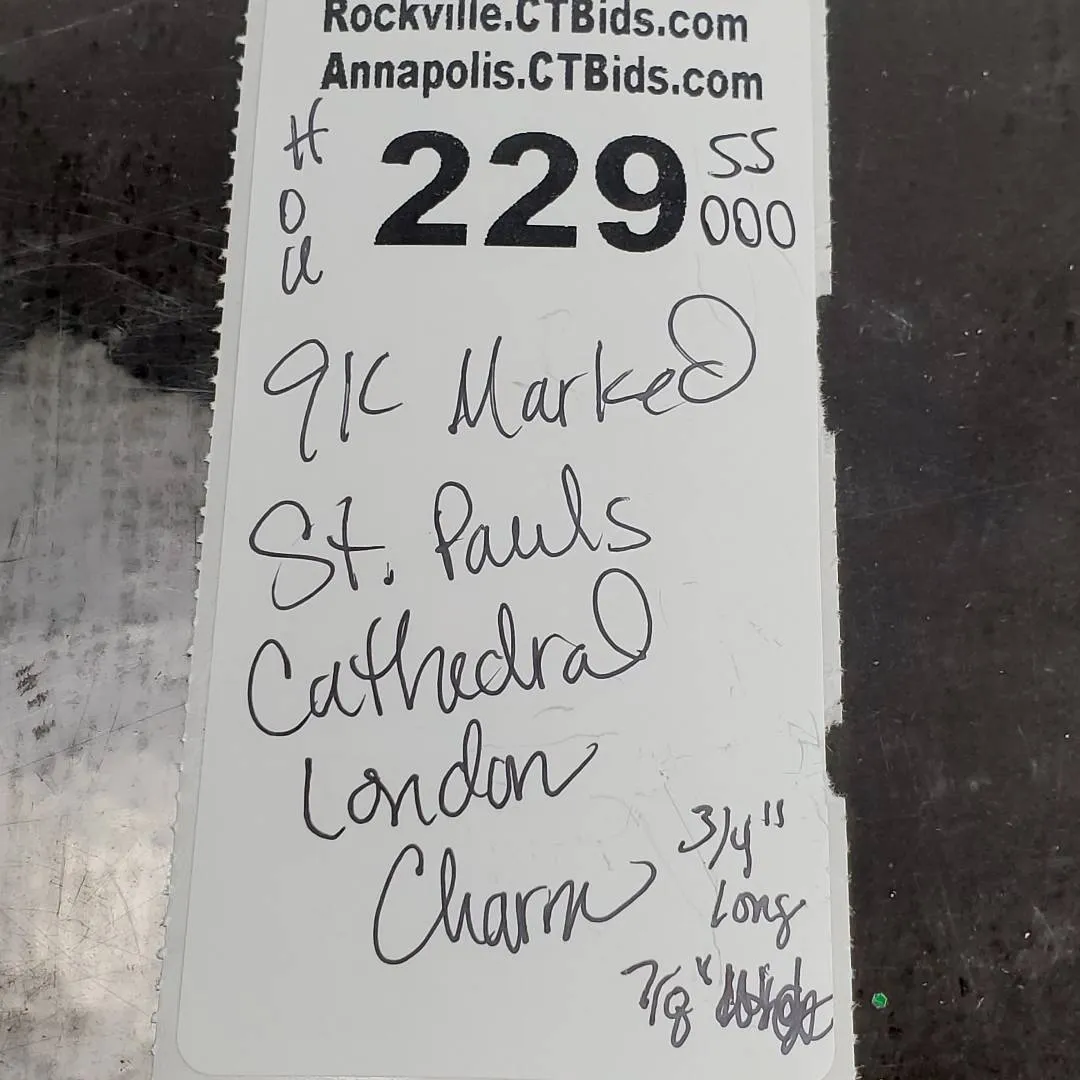 Rockville.CTBids.com
Annapolis.CTBids.com
H
O
U
229
SS
000
9K Marked
St. Pauls
Cathedral
London
Charm
3/4"
Long
7/8" Wide